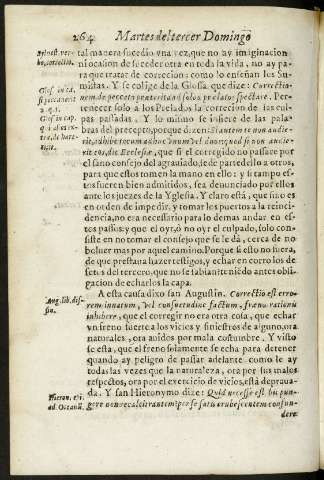 264 Martes del tercer Domingo
tal manera sucedio vna vez, que no ay imaginacion
ni ocasion de suceder otra en toda la vida, no ay pa-
ra que tratar de correccion: como lo enseñan los Su-
mistas. Y se colige de la Glossa, que dize: Correctio-
nem de peccato præterito ad solos prælatos spectare. Per-
tenecer solo a los Prelados la correccion de las cul-
pas passadas. Y lo mismo se infiere de las pala-
bras del precepto, porque dizen: Si autem te non audie-
rit, adhibe tecum adhuc vnum vel duos, quod si non audie-
rit eos, dic Ecclesiæ, que si el corregido no passare por
el sano consejo del agrauiado, se de parte dello a otros,
para que estos tomen la mano en ello: y si tampo es-
tos fueren bien admitidos, sea denunciado por ellos
ante los juezes de la Yglesia. Y claro está, que sino es
en orden de impedir, y tomar los puertos a la reinci-
dencia, no era necessario para lo demas andar en es-
tos passos: y que el oyr, o no oyr el culpado, solo con-
siste en no tomar el consejo que se le dá, cerca de no
boluer mas por aquel camino. Porque si esto no fuera,
de que prestaria hazer testigos, y echar en corro los de-
fetos del tercero, que no se sabian: teniēdo antes obli-
gacion de echarlos la capa.
A esta causa dixo san Augustin. Correctio est erro-
rem innatum, vel consuetudine factum, fræno rationis
inhibere, que el corregir no era otra cosa, que echar
vn freno fuerte a los vicios y siniestros de alguno, ora
naturales, ora auidos por mala costumbre. Y visto
se está, que el freno solamente se echa para detener
quando ay peligro de passar adelante como le ay
todas las vezes que la naturaleza, ora por sus malos
respectos, ora por el exercicio de vicios, está deprauа-
da. Y san Hieronymo dize: Quid necesse est his pun-
gere non recalcitrantem: per se satis erubescentem confun-
dere
Glos. in ca.
si peccauerit
2. q. 1.
Glos. in cap.
Aug. lib. dif-
fin.
Hieron. epi.
ad Oceanū.